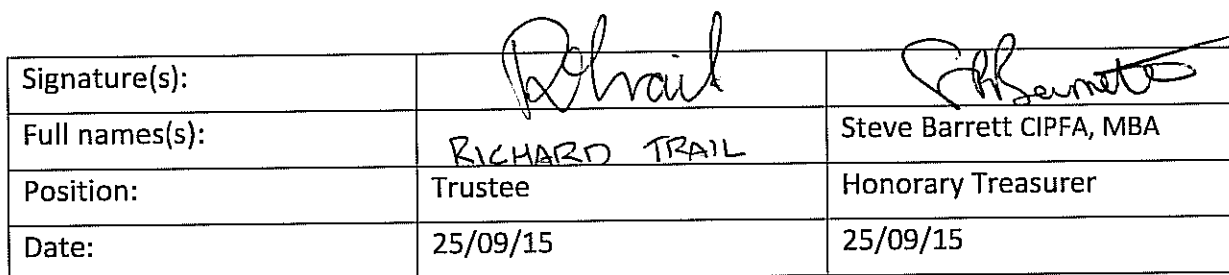 Signature(s): RTrail SRBarrett
Full names(s): RICHARD TRAIL Steve Barrett CIPFA, MBA
Position: Trustee Honorary Treasurer
Date: 25/09/15 25/09/15